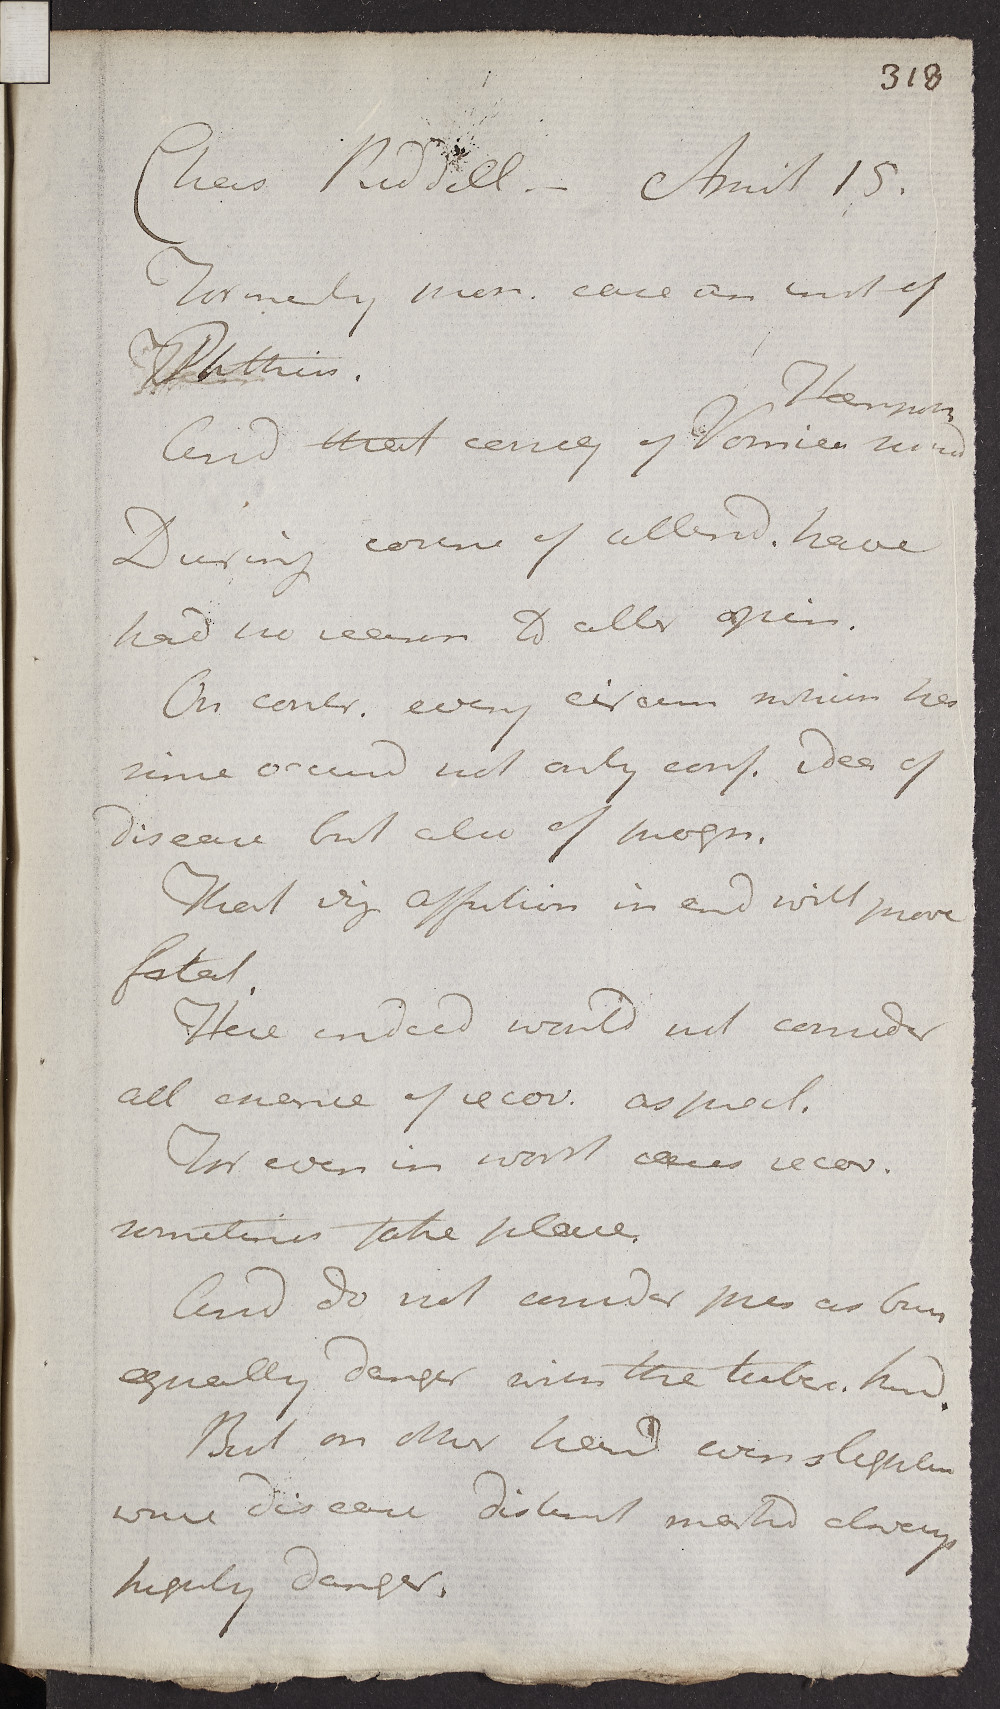 318
Chas Riddell — April 15.
Formerly men. case an inst of
Phthisis.
Haemop
And that causa of Vomica
During course of attend. have
had no reason to alter opin.
On contr. every circum which has
since occurred not only conf. idea of
disease but also of progn.
That viz affection in end will prove
fatal.
Here indeed would not consider
all chance of recov. as precl.
For even in worst cases recov.
sometimes take place.
And do not consider pres as being
equally danger with the tuber. kind.
But on other hand even slightest
where disease distinct marked always
highly danger.